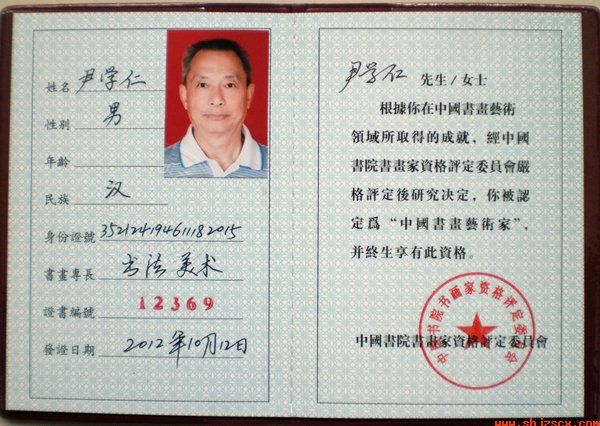 姓名 尹学仁
性别 男
年齡
民族 汉
身份證號 352124194611182015
書畫專長 书法 美术
證書編號 12369
發證日期 2012年10月12日
尹学仁 先生/女士
根據你在中國書畫藝術
領域所取得的成就，經中國
書院書畫家資格評定委員會嚴
格評定後研究決定，你被認
定爲“中國書畫藝術家”，
并終生享有此資格。
中国书院书画家资格评定委员会
中國書院書畫家資格評定委員會
www.shizscx.com